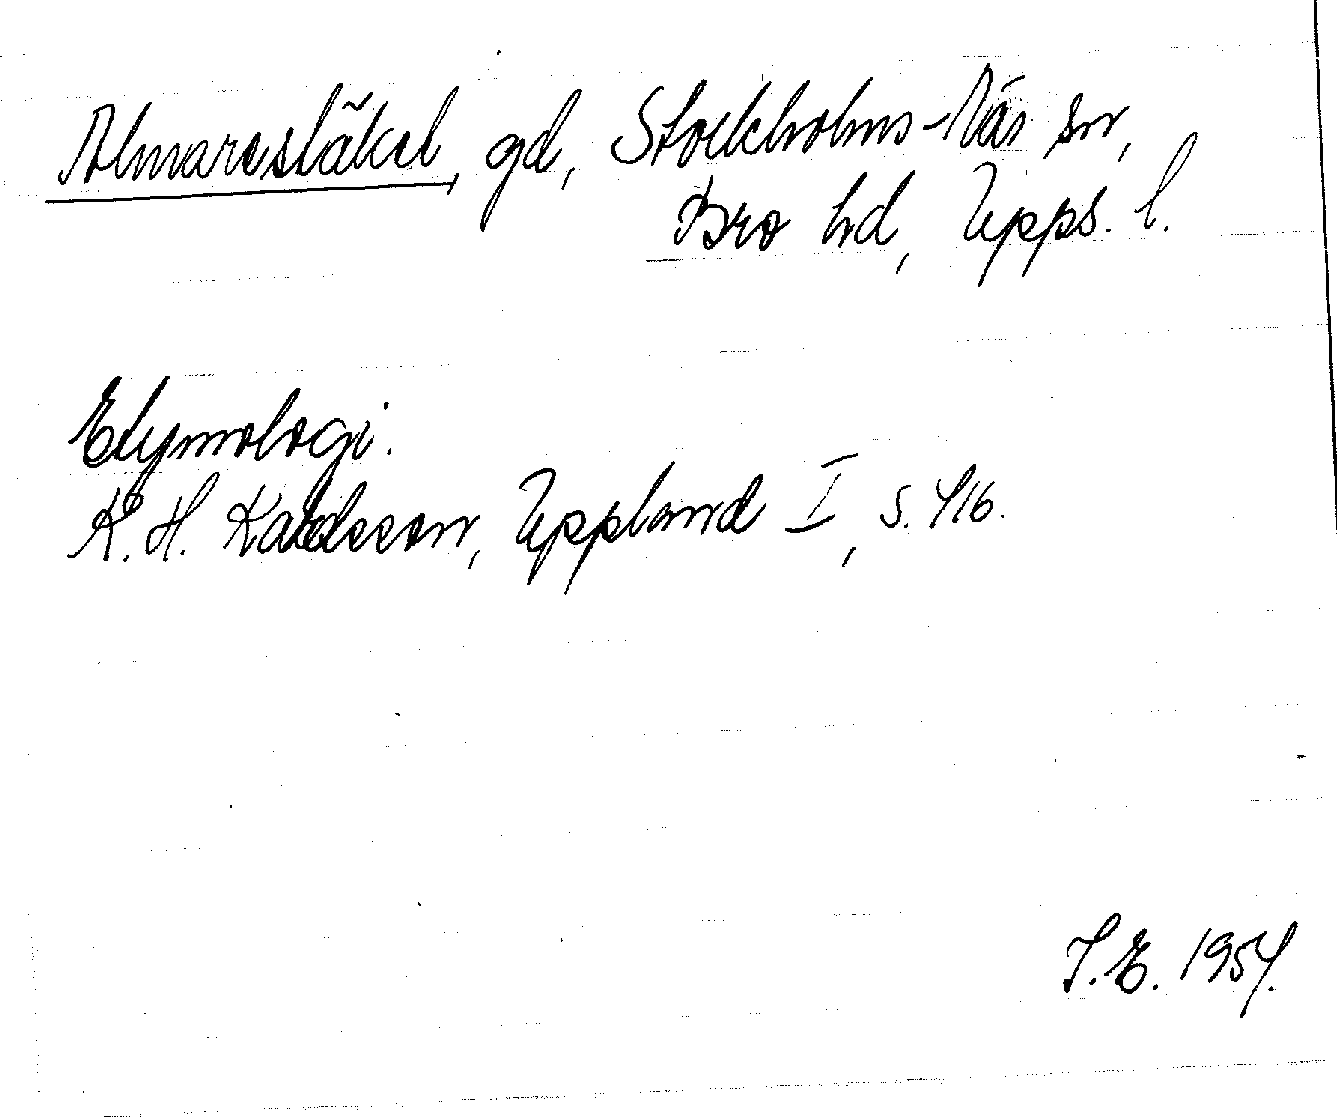 Almarestäket, gd, Stockholms-Näs sn,
Bro hd, Upps. l.
Etymologi.
K. H. Karlsson, Uppland I, s. 416.
1954.